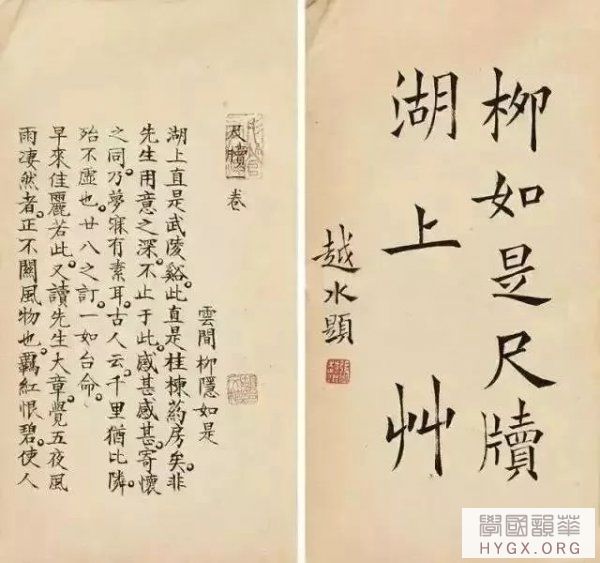 柳如是尺牘
湖上艸
越水題
尺牘一卷
雲間柳隱如是
湖上直是武陵谿。此直是桂棟葯房矣。非
先生用意之深。不止于此。感甚感甚。寄懷
之同。乃夢寐有素耳。古人云。千里猶比隣。
殆不虛也。廿八之訂。一如台命。
早來佳麗若此。又讀先生大章。覺五夜風
雨淒然者。正不關風物也。羈紅恨碧。使人
學國韻華
HYGX.ORG